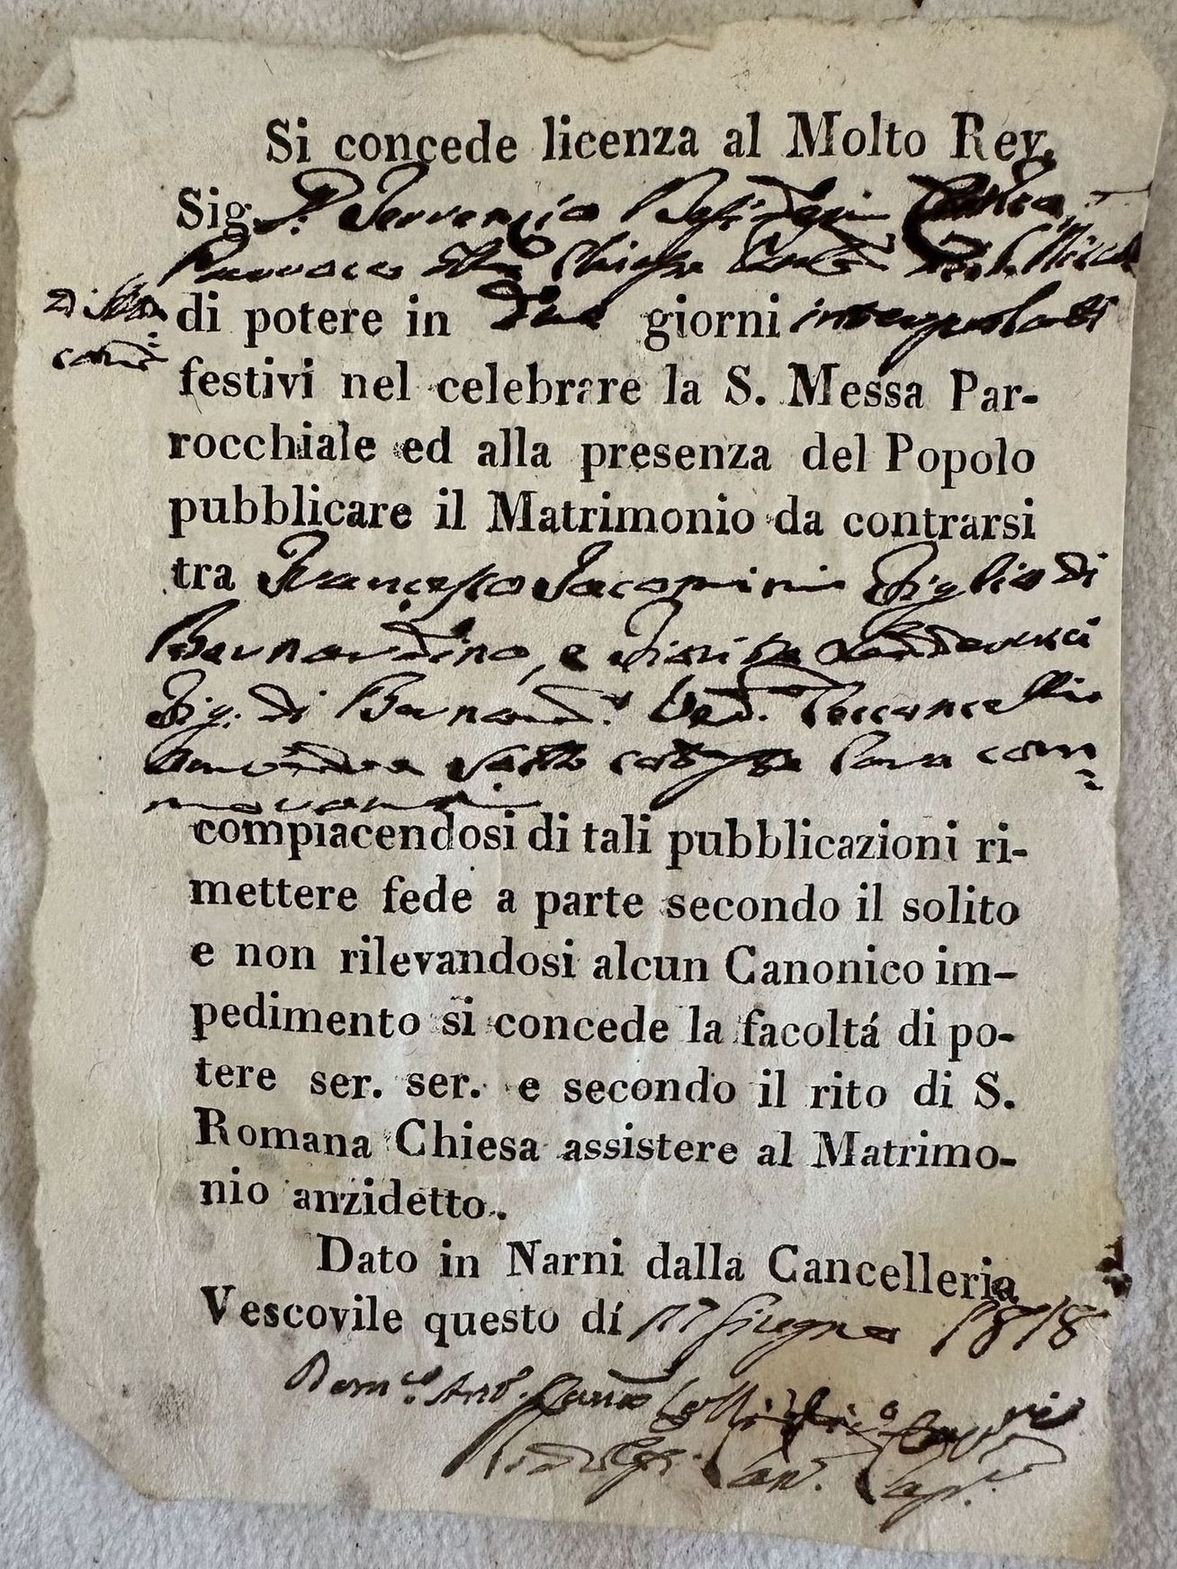 Si concede licenza al Molto Rev.
Sig.
Parroco Chiesa
di potere in due giorni interpolati
festivi nel celebrare la S. Messa Par-
rocchiale ed alla presenza del Popolo
pubblicare il Matrimonio da contrarsi
tra Francesco Jacomini Figlio di
Bernardino, e
Fig. di Bernard.º Ved.
compiacendosi di tali pubblicazioni ri-
mettere fede a parte secondo il solito
e non rilevandosi alcun Canonico im-
pedimento si concede la facoltá di po-
tere ser. ser. e secondo il rito di S.
Romana Chiesa assistere al Matrimo-
nio anzidetto.
Dato in Narni dalla Cancelleria
Vescovile questo dí 17 Giugno 1818
Dom.co Ant.